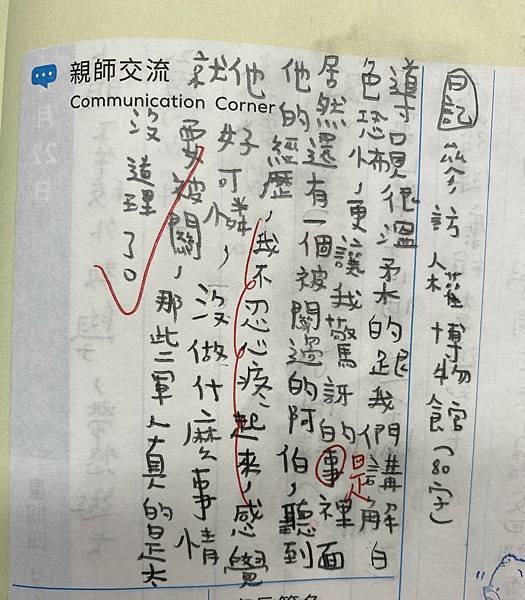 親師交流
Communication Corner
日記 參訪人權博物館(80字)
導覽很溫柔的跟我們講解白
色恐怖,更讓我驚訝的事是裡面
居然還有一個被關過的阿伯,聽到
他的經歷,我不忍心疼起來,感覺
他好可憐,沒做什麼事情
就要被關,那些軍人真的是太
沒道理了。